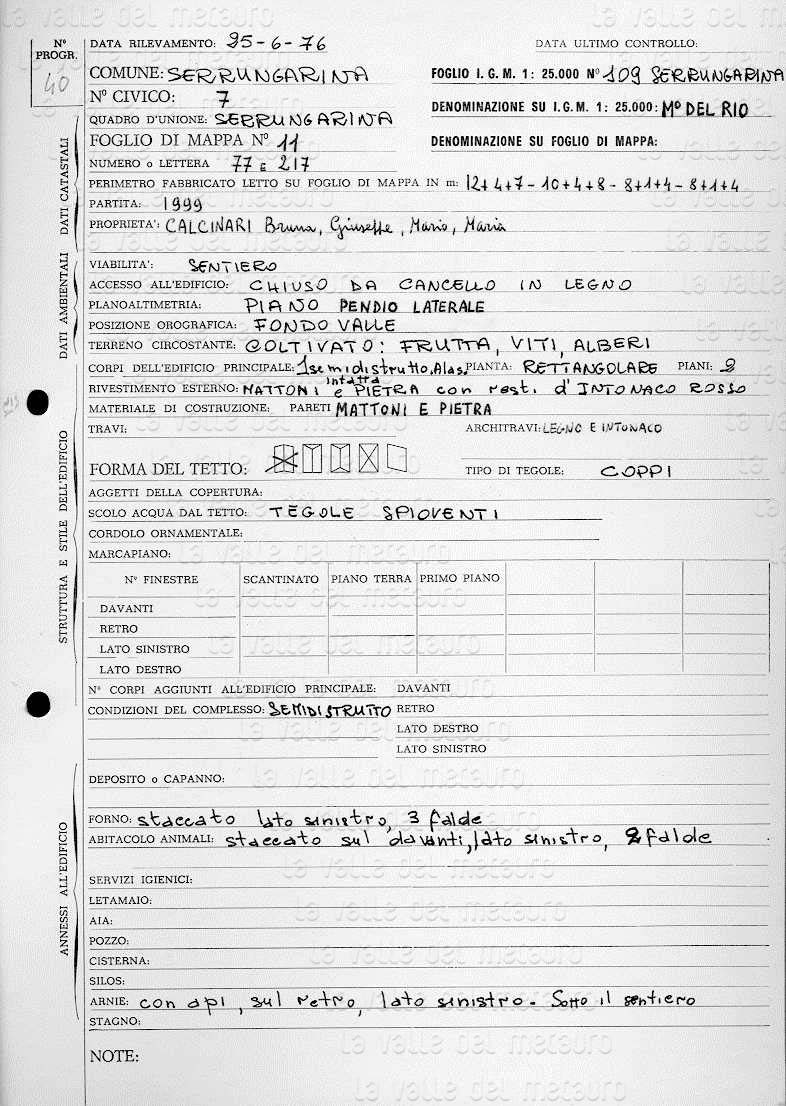 N° PROGR.
40
DATA RILEVAMENTO: 25-6-76
DATA ULTIMO CONTROLLO:
COMUNE: SERRUNGARINA
FOGLIO I. G. M. 1: 25.000 N° 109 SERRUNGARINA
N° CIVICO: 7
DENOMINAZIONE SU I.G.M. 1: 25.000: M° DEL RIO
QUADRO D'UNIONE: SERRUNGARINA
FOGLIO DI MAPPA N° 11
DENOMINAZIONE SU FOGLIO DI MAPPA:
NUMERO o LETTERA 77 E 217
PERIMETRO FABBRICATO LETTO SU FOGLIO DI MAPPA IN m: 12+4+7-10+4+8-8+1+4-8+1+4
PARTITA: 1999
PROPRIETA': CALCINARI Bruna, Giuseppe, Mario, Maria
DATI CATASTALI
VIABILITA': SENTIERO
ACCESSO ALL'EDIFICIO: CHIUSO DA CANCELLO IN LEGNO
PLANOALTIMETRIA: PIANO PENDIO LATERALE
POSIZIONE OROGRAFICA: FONDO VALLE
TERRENO CIRCOSTANTE: COLTIVATO: FRUTTA, VITI, ALBERI
DATI AMBIENTALI
CORPI DELL'EDIFICIO PRINCIPALE: 1 semidistrutto, Alas. intatta PIANTA: RETTANGOLARE PIANI: 2
RIVESTIMENTO ESTERNO: MATTONI e PIETRA con resti d'INTONACO ROSSO
MATERIALE DI COSTRUZIONE: PARETI MATTONI E PIETRA
TRAVI:
ARCHITRAVI: LEGNO E INTONACO
FORMA DEL TETTO:
TIPO DI TEGOLE: COPPI
AGGETTI DELLA COPERTURA:
SCOLO ACQUA DAL TETTO: TEGOLE SPIOVENTI
CORDOLO ORNAMENTALE:
MARCAPIANO:
N° FINESTRE SCANTINATO PIANO TERRA PRIMO PIANO
DAVANTI
RETRO
LATO SINISTRO
LATO DESTRO
STRUTTURA E STILE DELL'EDIFICIO
N° CORPI AGGIUNTI ALL'EDIFICIO PRINCIPALE: DAVANTI
CONDIZIONI DEL COMPLESSO: SEMIDISTRUTTO RETRO
LATO DESTRO
LATO SINISTRO
DEPOSITO o CAPANNO:
FORNO: staccato lato sinistro, 3 falde
ABITACOLO ANIMALI: staccato sul davanti, lato sinistro, 2 falde
SERVIZI IGIENICI:
LETAMAIO:
AIA:
POZZO:
CISTERNA:
SILOS:
ARNIE: con api, sul retro, lato sinistro. Sotto il sentiero
STAGNO:
ANNESSI ALL'EDIFICIO
NOTE:
la valle del metauro